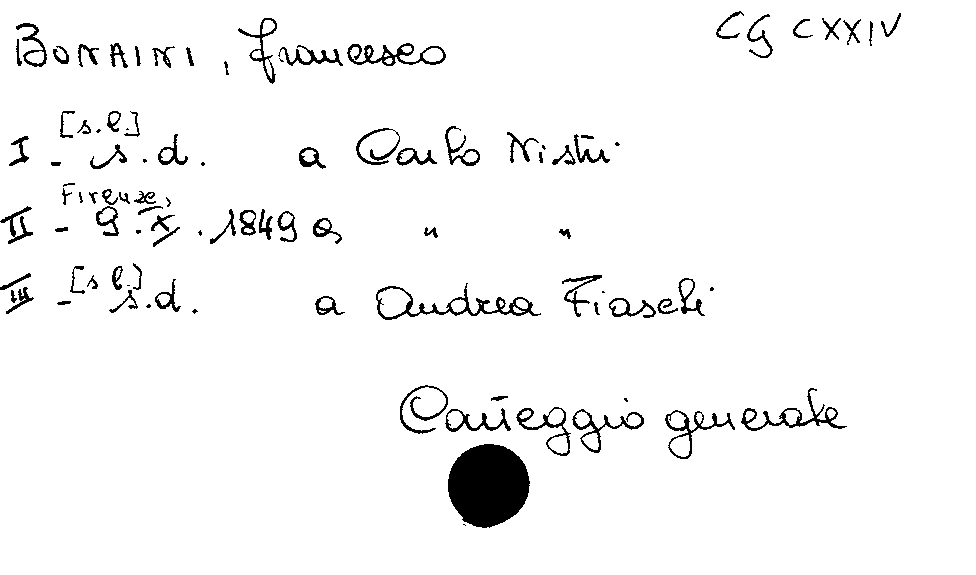 BONAINI, Francesco
CG CXXIV
[s.l.]
I - s.d. a Carlo Nistri
Firenze,
II - 9.X.1849 a " "
[s.l.]
III - s.d. a Andrea Fiaschi
Carteggio generale